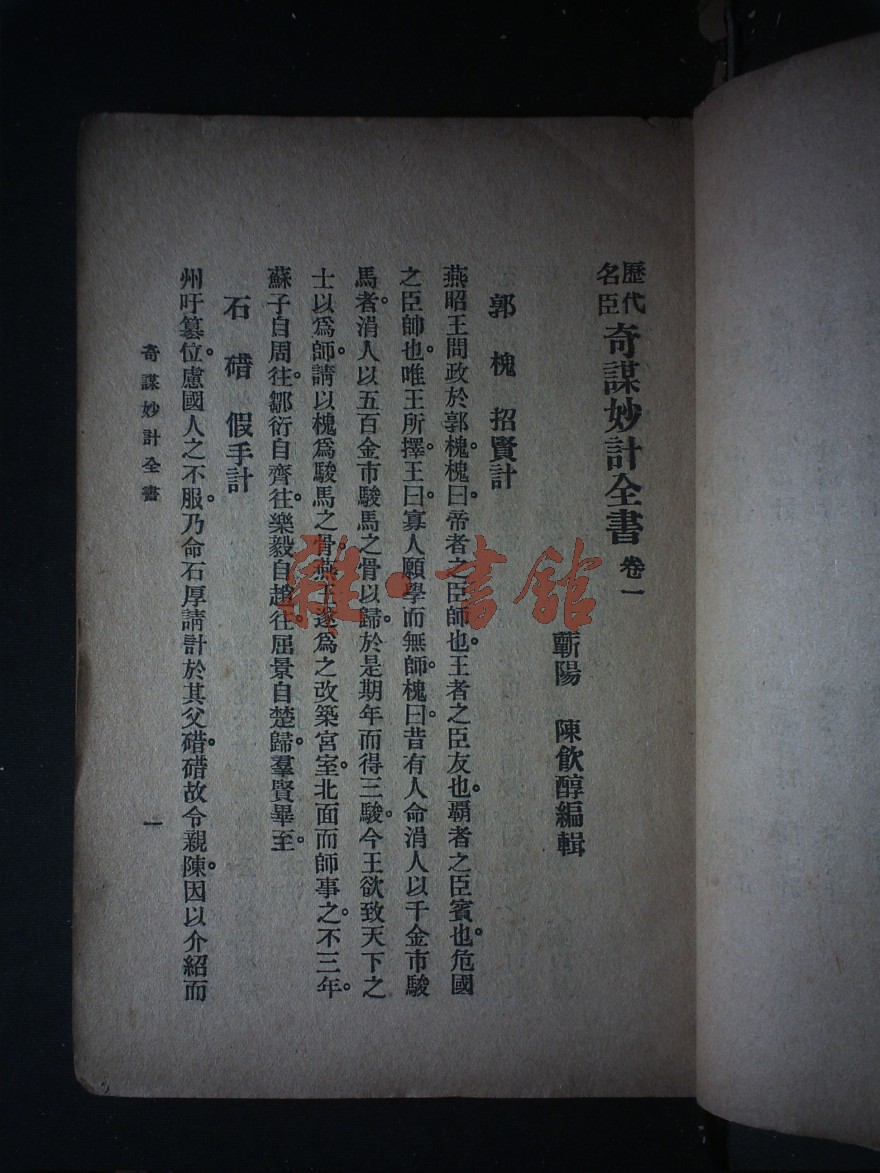 歷代名臣奇謀妙計全書 卷一
蘄陽 陳飲醇編輯
郭槐 招賢計
燕昭王問政於郭槐。槐曰。帝者之臣師也。王者之臣友也。覇者之臣賓也。危國
之臣帥也。唯王所擇。王曰。寡人願學而無師。槐曰。昔有人命涓人以千金市駿
馬者。涓人以五百金市駿馬之骨以歸。於是期年而得三駿。今王欲致天下之
士以爲師。請以槐爲駿馬之骨。燕王遂爲之改築宮室。北面而師事之。不三年。
蘇子自周往。鄒衍自齊往。樂毅自趙往。屈景自楚歸。羣賢畢至。
石碏 假手計
州吁簒位。慮國人之不服。乃命石厚請計於其父碏。碏故令親陳。因以介紹而
奇謀妙計全書
一
雜·書館